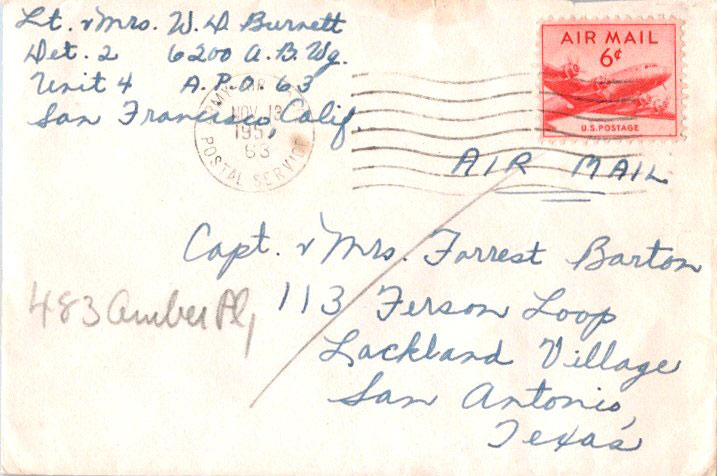 Lt. & Mrs. W. D Burnett
Det. 2 6200 A.B. Wg.
Unit 4 A.P.O. 63
San Francisco, Calif.
AIR
NOV 13
195
63
POSTAL SERVICE
AIR MAIL
6¢
U.S. POSTAGE
AIR MAIL
Capt. & Mrs. Forrest Barton
113 Ferson Loop
Lackland Village
San Antonio,
Texas
483 Amber Pl,